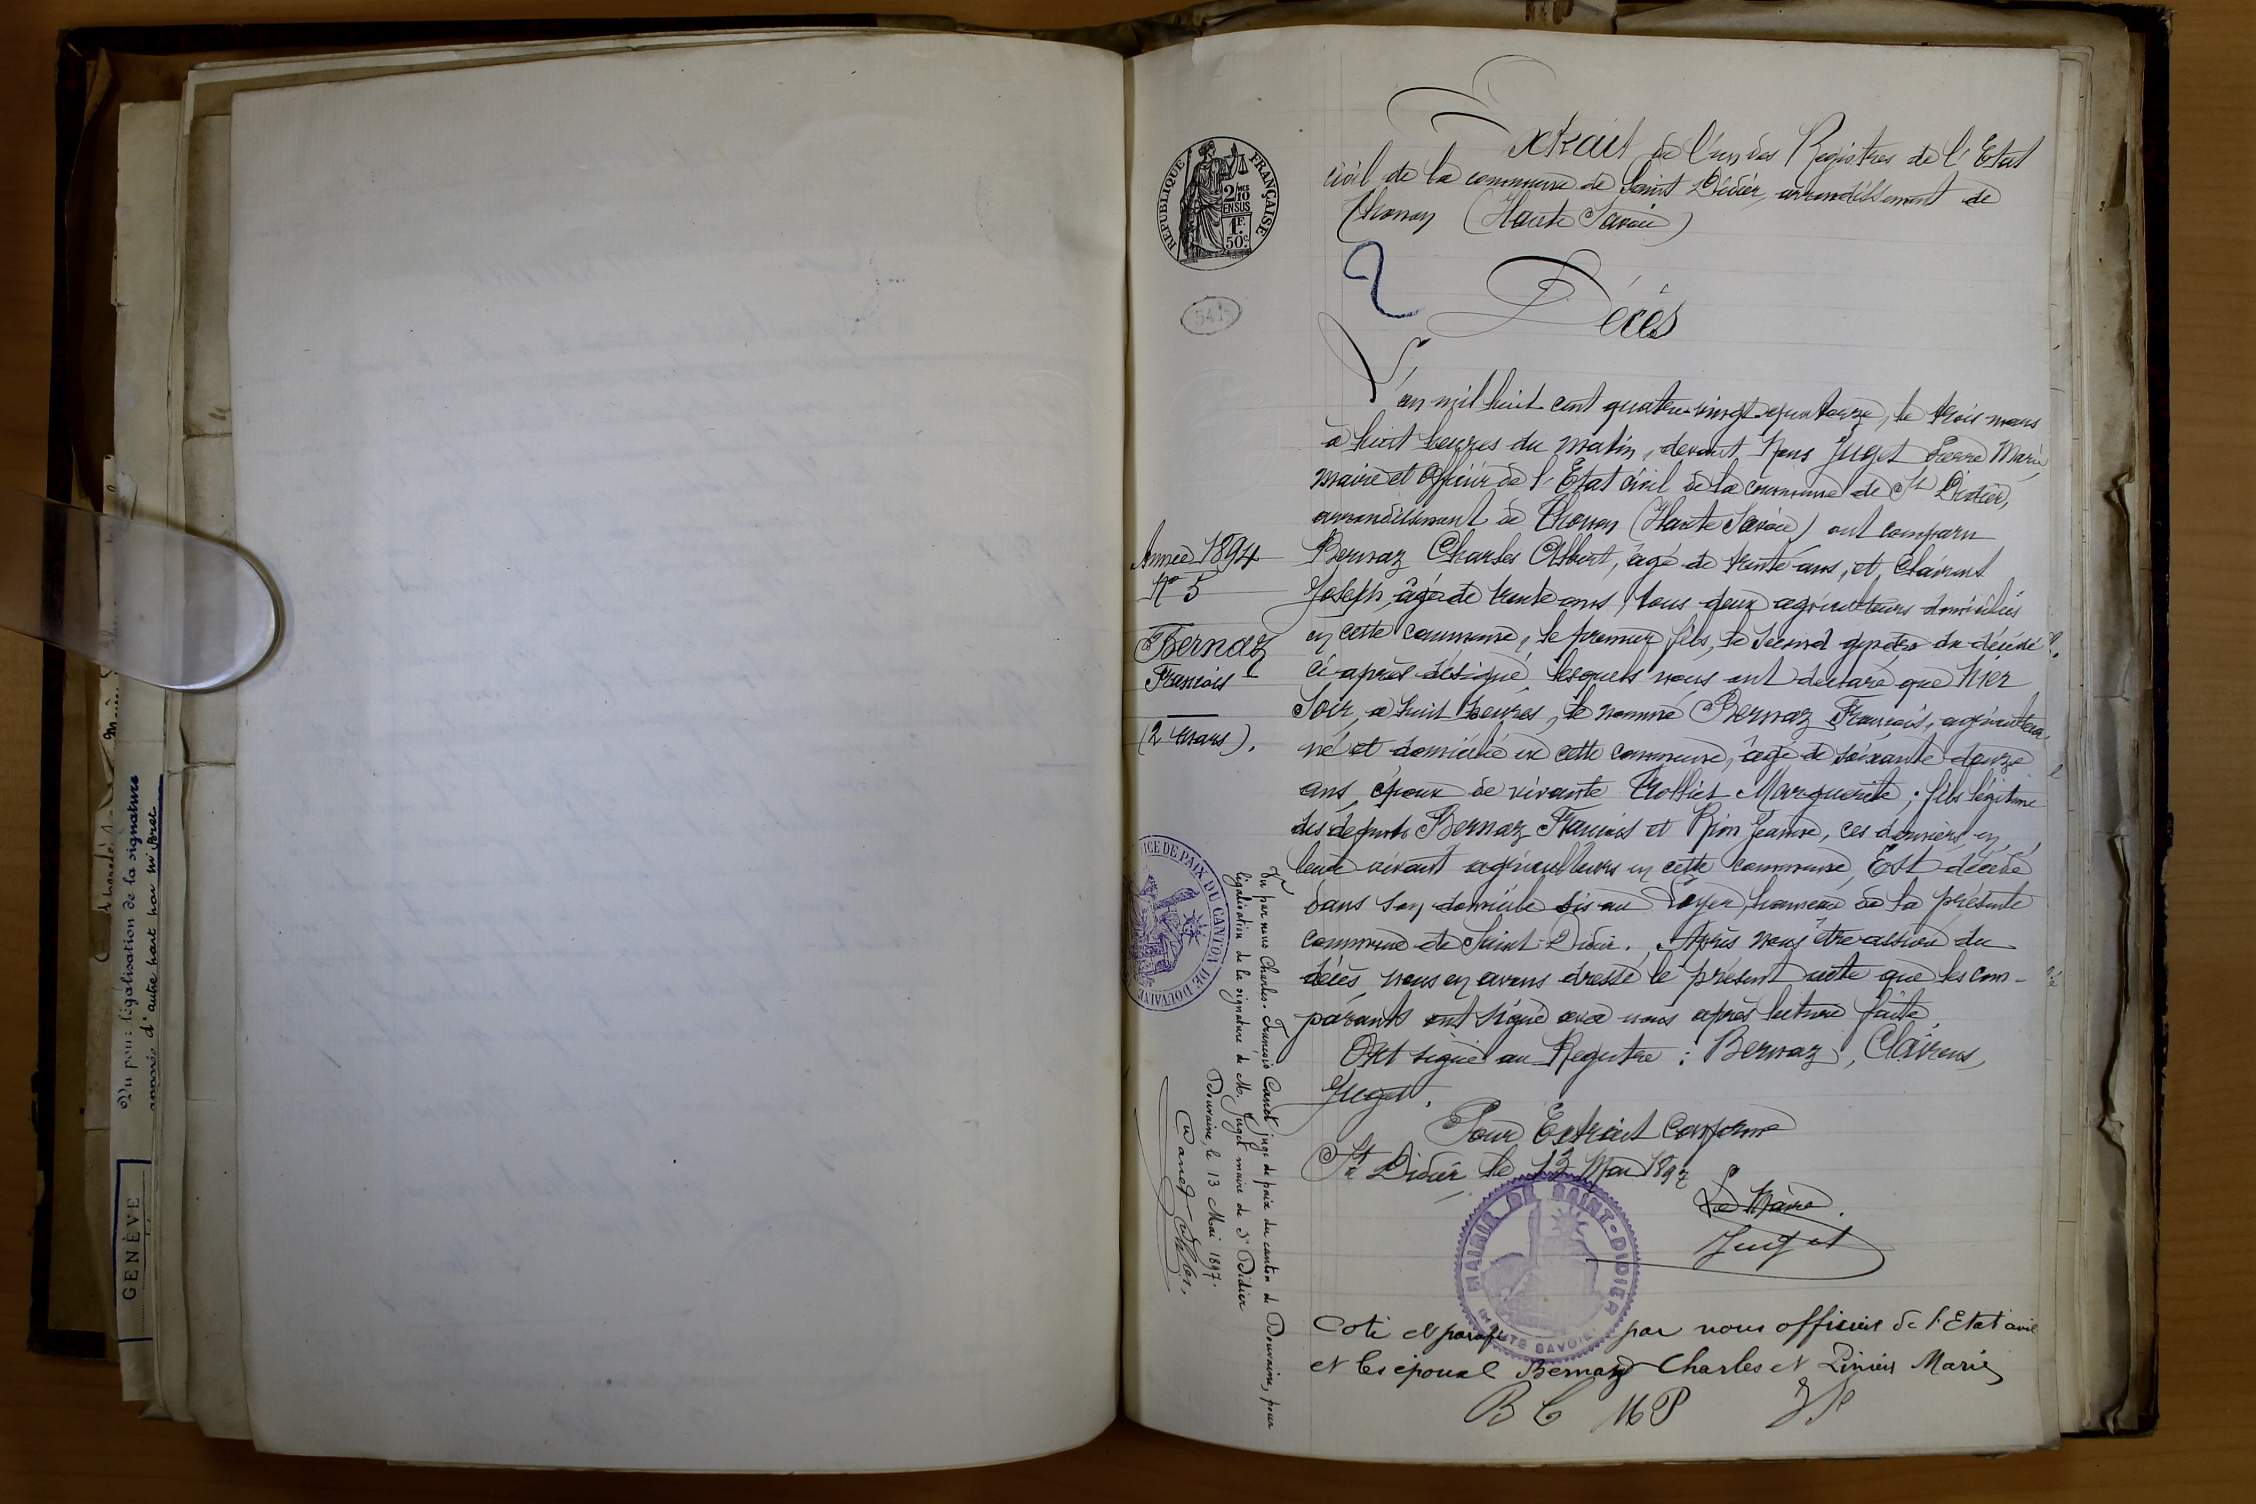 Extrait de l'un des Registres de l'Etat
civil de la commune de Saint Didier, arrondissement de
Thonon (Haute Savoie)
2
Décès
L'an mil huit cent quatre-vingt-quatorze, le trois mars
à huit heures du matin, devant Nous Juget Pierre Marie
maire et Officier de l'Etat civil de la commune de St Didier,
arrondissement de Thonon (Haute Savoie) ont comparu
Bernaz Charles Albert, âgé de trente ans, et Clairens
Joseph, âgé de trente ans, tous deux agriculteurs domiciliés
en cette commune, le premier fils, le second gendre du décédé
ci-après désigné, lesquels nous ont déclaré que hier
soir, à huit heures, le nommé Bernaz François, agriculteur,
né et domicilié en cette commune, âgé de soixante douze
ans, époux de vivante Trolliet Marguerite; fils légitime
des défunts Bernaz François et Rion Jeanne, ces derniers en
leur vivant agriculteurs en cette commune, Est décédé
dans son domicile sis au hameau de la présente
commune de Saint-Didier. Après nous être assuré du
décès, nous en avons dressé le présent acte que les com-
parants ont signé avec nous après lecture faite.
Ont signé au Registre : Bernaz, Clairens,
Juget.
Pour Extrait Conforme
St Didier le 13 Mai 1897
Le Maire.
Juget
MAIRIE DE SAINT-DIDIER
(HAUTE SAVOIE)
Coté et parafé par nous officier de l'Etat civil
et les époux Bernaz Charles et Pinier Marie
B C MP
REPUBLIQUE FRANÇAISE
2/10 MES
EN SUS
1F.
50c.
541
Année 1894
No 5
Bernaz
François
(2 mars).
JUSTICE DE PAIX DU CANTON DE DOUVAINE
Vu par nous Charles-François Canet juge de paix du canton de Douvaine, pour
légalisation de la signature de M. Juget maire de St Didier
Douvaine, le 13 Mai 1897.
Canet
Vu pour légalisation de la signature
apposée d'autre part par Mr Bret
GENÈVE